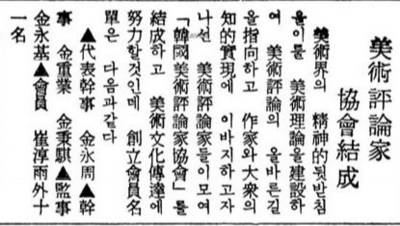 美術評論家
協會結成
美術界의 精神的뒷받침
을이룰 美術理論을建設하
여 美術評論의 올바른길
을指向하고 作家와大衆의
知的實現에 이바지하고자
나선 美術評論家들이모여
「韓國美術評論家協會」를
結成하고 美術文化傳達에
努力할것인데 創立會員名
單은 다음과같다
▲代表幹事 金永周▲幹
事 金重業 金秉騏▲監事
金永基▲會員 崔淳雨外十
一名